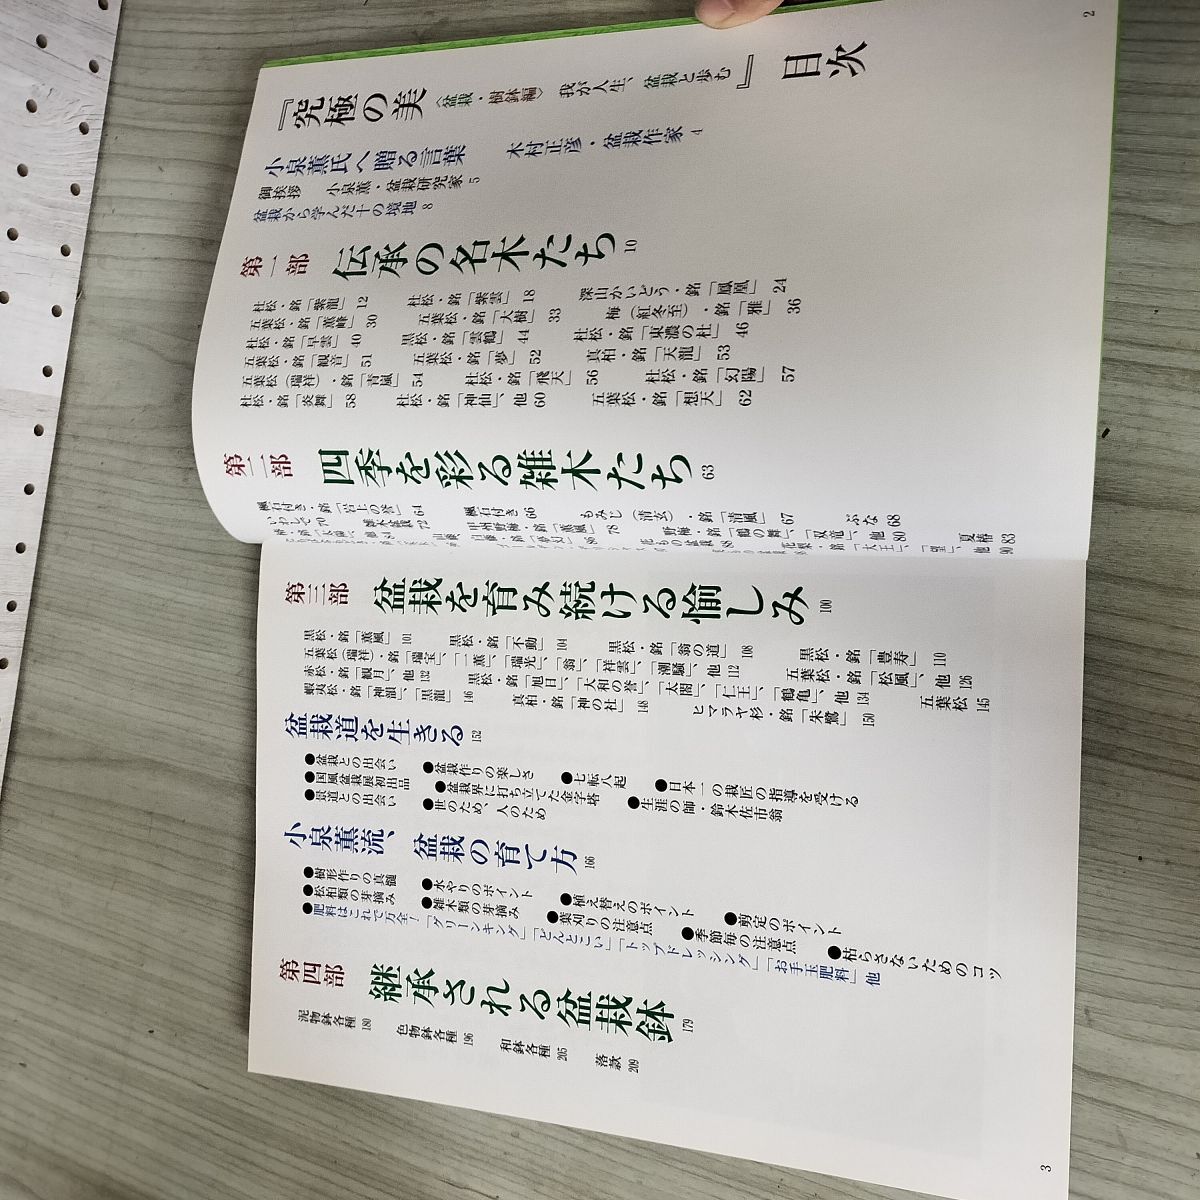 『究極の美〈盆栽・樹鉢編〉我が人生、盆栽と歩む』目次
小泉薫氏へ贈る言葉 木村正彦・盆栽作家 4
御挨拶 小泉薫・盆栽研究家 5
盆栽から学んだ十の境地 8
第一部 伝承の名木たち 10
杜松・銘「紫龍」 12 杜松・銘「紫雲」 18 深山かいどう・銘「鳳凰」 24
五葉松・銘「薫峰」 30 五葉松・銘「大樹」 33 梅(紅冬至)・銘「雅」 36
杜松・銘「早雲」 40 黒松・銘「雲鶴」 44 杜松・銘「東濃の杜」 46
五葉松・銘「観音」 51 五葉松・銘「夢」 52 真柏・銘「天龍」 53
五葉松(瑞祥)・銘「青嵐」 54 杜松・銘「飛天」 56 杜松・銘「幻陽」 57
杜松・銘「炎舞」 58 杜松・銘「神仙」、他 60 五葉松・銘「想天」 62
第二部 四季を彩る雑木たち 63
楓石付き・銘「岩上の誉」 64 楓石付き 66 もみじ(清玄)・銘「清風」 67 ぶな 68
いわしで 70 雑木盆栽 72 甲州野梅・銘「薫風」 78 野梅・銘「鶴の舞」、「双竜」、他 80 夏椿 83
花もの盆栽 花梨・銘「大王」、「望」、他 90
第三部 盆栽を育み続ける愉しみ 100
黒松・銘「薫風」 101 黒松・銘「不動」 104 黒松・銘「翁の道」 108 黒松・銘「豊寿」 110
五葉松(瑞祥)・銘「瑞宝」、「一薫」、「瑞光」、「翁」、「祥雲」、「潮騒」、他 112 五葉松・銘「松風」、他 126
赤松・銘「観月」、他 132 黒松・銘「旭日」、「大和の誉」、「太閤」、「仁王」、「鶴亀」、他 134 五葉松 145
蝦夷松・銘「神韻」、「黒龍」 146 真柏・銘「神の杜」 148 ヒマラヤ杉・銘「朱鷺」 150
盆栽道を生きる 152
●盆栽との出会い ●盆栽作りの楽しさ ●七転八起 ●日本一の栽匠の指導を受ける
●国風盆栽展初出品 ●盆栽界に打ち立てた金字塔 ●生涯の師・鈴木佐市翁
●昻道との出会い ●世のため、人のため
小泉薫流、盆栽の育て方 166
●樹形作りの真髄 ●水やりのポイント ●植え替えのポイント ●剪定のポイント
●松柏類の芽摘み ●雑木類の芽摘み ●葉刈りの注意点 ●季節毎の注意点 ●枯らさないためのコツ
●肥料はこれで万全！「グリーンキング」「どんとこい」「トップドレッシング」「お手玉肥料」他
第四部 継承される盆栽鉢 179
泥物鉢各種 180 色物鉢各種 196 和鉢各種 205 落款 209
2
3